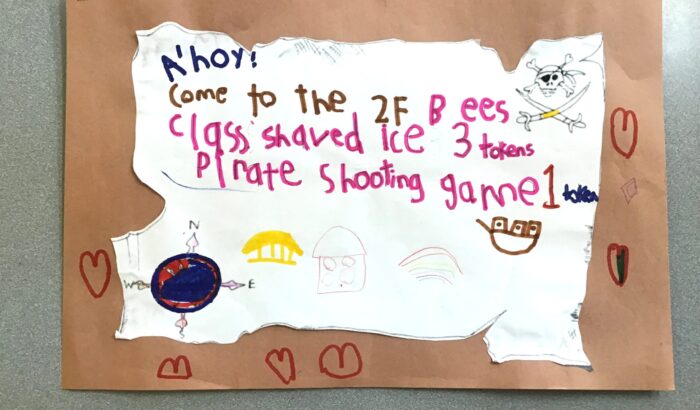 A'hoy!
Come to the 2F Bees
Class shaved ice 3 tokens
Pirate shooting game 1 token
N
W E
S